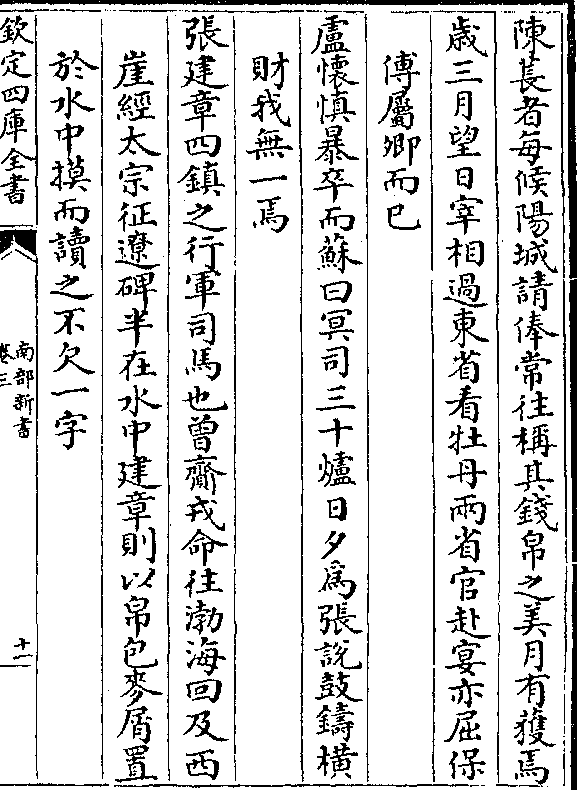 陳萇者每候陽城請俸常往稱其錢帛之美月有獲焉
歲三月望日宰相過東省看牡丹兩省官赴宴亦屈保
傅屬卿而已
盧懷慎暴卒而蘇曰冥司三十爐日夕為張說鼓鑄橫
財我無一焉
張建章四鎮之行軍司馬也曾齎戎命往渤海回及西
崖經太宗征遼碑半在水中建章則以帛包麥屑置
於水中摸而讀之不欠一字
欽定四庫全書
南部新書
卷三
十一